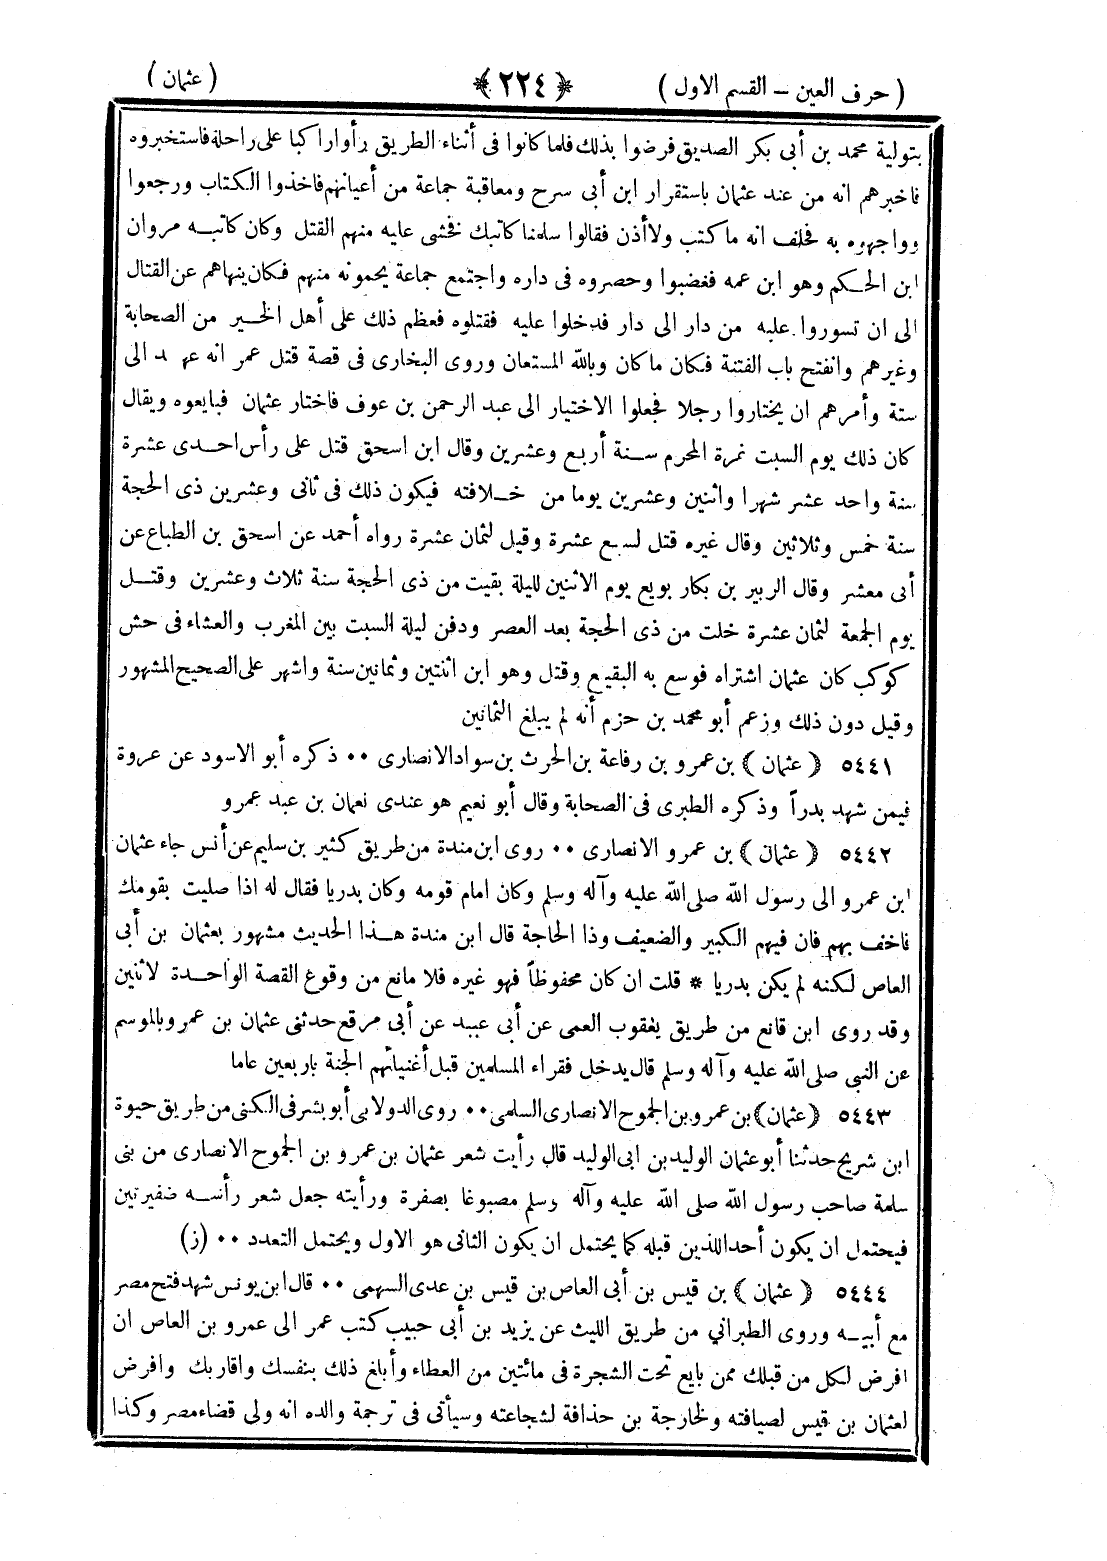 ( حرف العين – القسم الاول ) ﴿ ٢٢٤ ﴾ ( عثمان )
بتولية محمد بن أبى بكر الصديق فرضوا بذلك فلما كانوا فى أثناء الطريق رأوا راكبا على راحلة فاستخبروه
فاخبرهم انه من عند عثمان باستقرار ابن أبى سرح ومعاقبة جماعة من أعيانهم فاخذوا الكتاب ورجعوا
وواجهوه به فحلف انه ما كتب ولا أذن فقالوا سلمنا كاتبك فخشى عليه منهم القتل وكان كاتبه مروان
ابن الحكم وهو ابن عمه فغضبوا وحصروه فى داره واجتمع جماعة يحمونه منهم فكان ينهاهم عن القتال
الى ان تسوروا عليه من دار الى دار فدخلوا عليه فقتلوه فعظم ذلك على أهل الخير من الصحابة
وغيرهم وانفتح باب الفتنة فكان ما كان وبالله المستعان وروى البخارى فى قصة قتل عمر انه عهد الى
ستة وأمرهم ان يختاروا رجلا فجعلوا الاختيار الى عبد الرحمن بن عوف فاختار عثمان فبايعوه ويقال
كان ذلك يوم السبت غرة المحرم سنة أربع وعشرين وقال ابن اسحق قتل على رأس احدى عشرة
سنة واحد عشر شهرا واثنين وعشرين يوما من خلافته فيكون ذلك فى ثانى وعشرين ذى الحجة
سنة خمس وثلاثين وقال غيره قتل لسبع عشرة وقيل لثمان عشرة رواه أحمد عن اسحق بن الطباع عن
أبى معشر وقال الزبير بن بكار بويع يوم الاثنين لليلة بقيت من ذى الحجة سنة ثلاث وعشرين وقتل
يوم الجمعة لثمان عشرة خلت من ذى الحجة بعد العصر ودفن ليلة السبت بين المغرب والعشاء فى حش
كوكب كان عثمان اشتراه فوسع به البقيع وقتل وهو ابن اثنتين وثمانين سنة واشهر على الصحيح المشهور
وقيل دون ذلك وزعم أبو محمد بن حزم أنه لم يبلغ الثمانين
٥٤٤١ ﴿ عثمان ﴾ بن عمرو بن رفاعة بن الحرث بن سواد الانصارى ٠٠ ذكره أبو الاسود عن عروة
فيمن شهد بدراً وذكره الطبرى فى الصحابة وقال أبو نعيم هو عندى نعمان بن عبد عمرو
٥٤٤٢ ﴿ عثمان ﴾ بن عمرو الانصارى ٠٠ روى ابن مندة من طريق كثير بن سليم عن أنس جاء عثمان
ابن عمرو الى رسول الله صلى الله عليه وآله وسلم وكان امام قومه وكان بدريا فقال له اذا صليت بقومك
فاخف بهم فان فيهم الكبير والضعيف وذا الحاجة قال ابن مندة هذا الحديث مشهور بعثمان بن أبى
العاص لكنه لم يكن بدريا * قلت ان كان محفوظاً فهو غيره فلا مانع من وقوع القصة الواحدة لاثنين
وقد روى ابن قانع من طريق يعقوب العمى عن أبى عبيد عن أبى مرقع حدثنى عثمان بن عمرو بالموسم
عن النبي صلى الله عليه وآله وسلم قال يدخل فقراء المسلمين قبل أغنيائهم الجنة باربعين عاما
٥٤٤٣ ﴿ عثمان ﴾ بن عمرو بن الجموح الانصارى السلمى ٠٠ روى الدولابى أبو بشر فى الكنى من طريق حيوة
ابن شريح حدثنا أبو عثمان الوليد بن ابى الوليد قال رأيت شعر عثمان بن عمرو بن الجموح الانصارى من بنى
سلمة صاحب رسول الله صلى الله عليه وآله وسلم مصبوغا بصفرة ورأيته جعل شعر رأسه ضفيرتين
فيحتمل ان يكون أحد اللذين قبله كما يحتمل ان يكون الثانى هو الاول ويحتمل التعدد ٠٠ (ز)
٥٤٤٤ ﴿ عثمان ﴾ بن قيس بن أبى العاص بن قيس بن عدى السهمى ٠٠ قال ابن يونس شهد فتح مصر
مع أبيه وروى الطبراني من طريق الليث عن يزيد بن أبى حبيب كتب عمر الى عمرو بن العاص ان
افرض لكل من قبلك ممن بايع تحت الشجرة فى مائتين من العطاء وأبلغ ذلك بنفسك واقاربك وافرض
لعثمان بن قيس لضيافته ولخارجة بن حذافة لشجاعته وسيأتى فى ترجمة والده انه ولى قضاء مصر وكذا